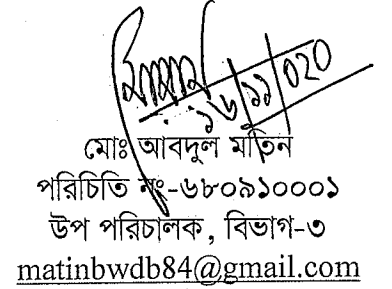 ১৬/১১/০২০
মোঃ আবদুল মতিন
পরিচিতি নং-৬৮০৯১০০০১
উপ পরিচালক, বিভাগ-৩
matinbwdb84@gmail.com